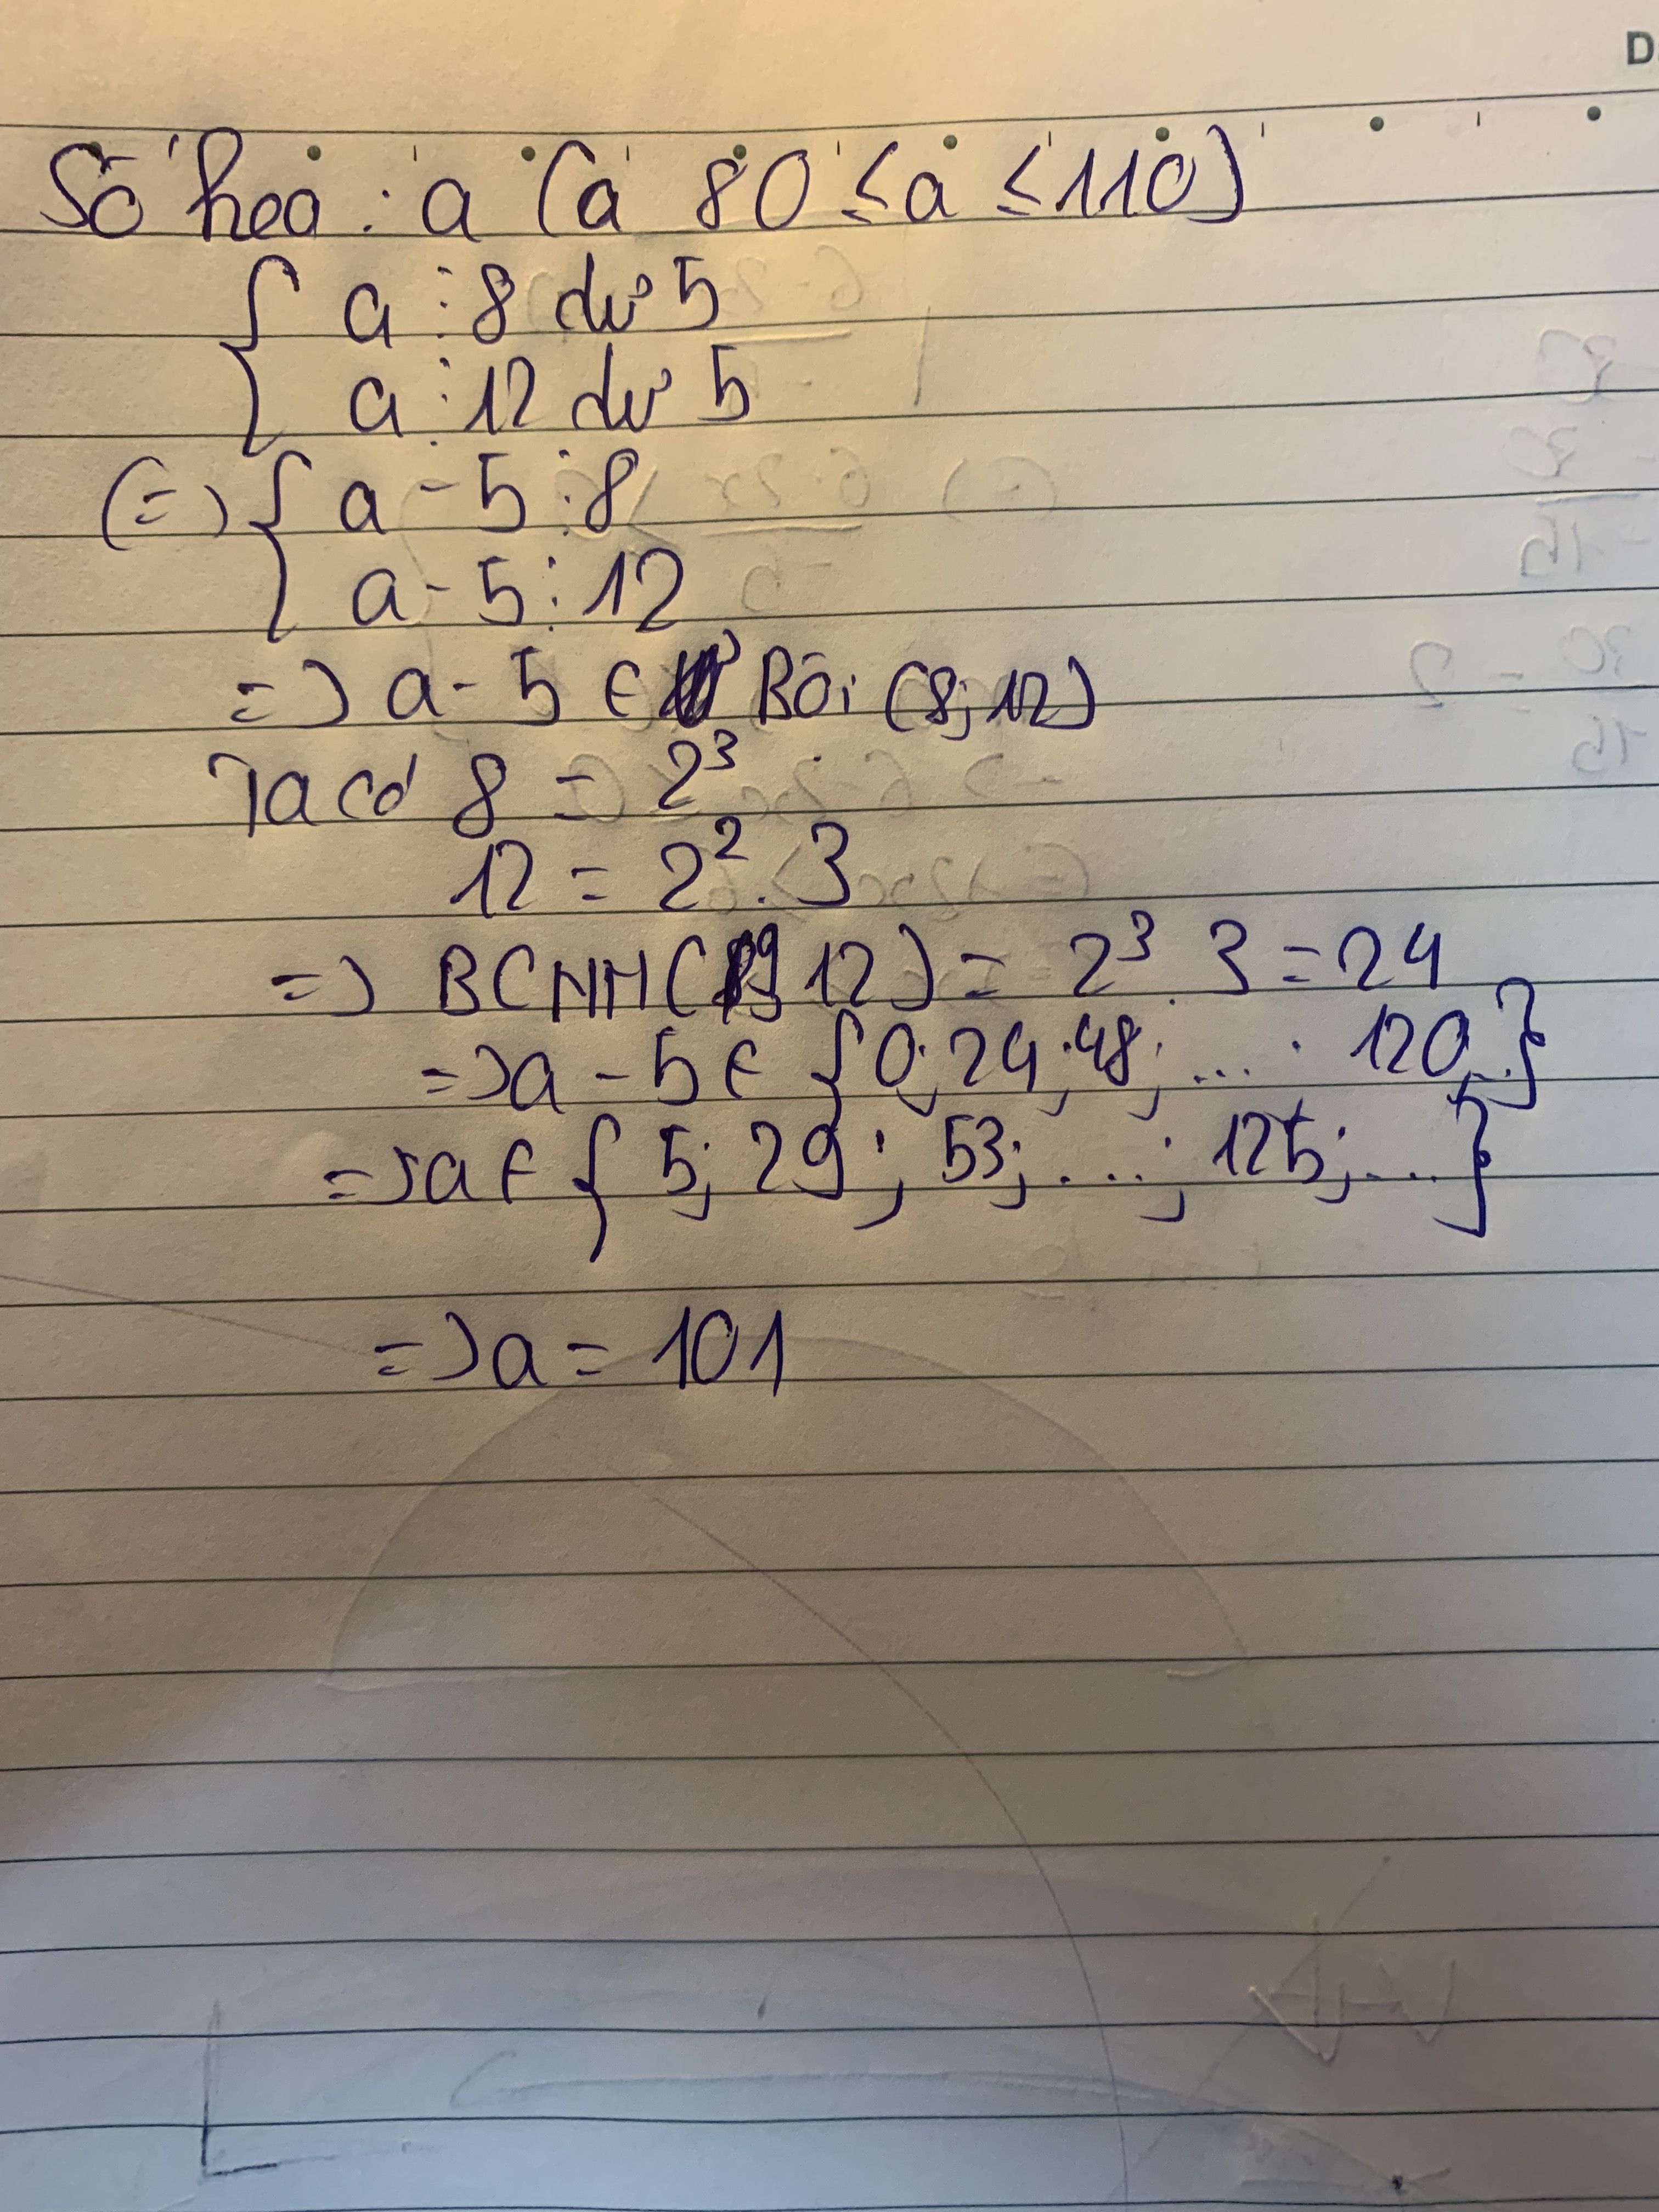 D
Số hoa : a (a 80 ≤ a ≤ 110)
{ a ⋮ 8 dư 5
a ⋮ 12 dư 5
(=) { a - 5 ⋮ 8
a - 5 ⋮ 12
=) a - 5 ∈ Bôi (8; 12)
Ta có 8 = 2³
12 = 2² . 3
=) BCNN( 12) = 2³ . 3 = 24
=) a - 5 ∈ {0; 24; 48; ... . 120,..}
=) a ∈ { 5; 29 ; 53; ....; 125; ....}
=) a = 101